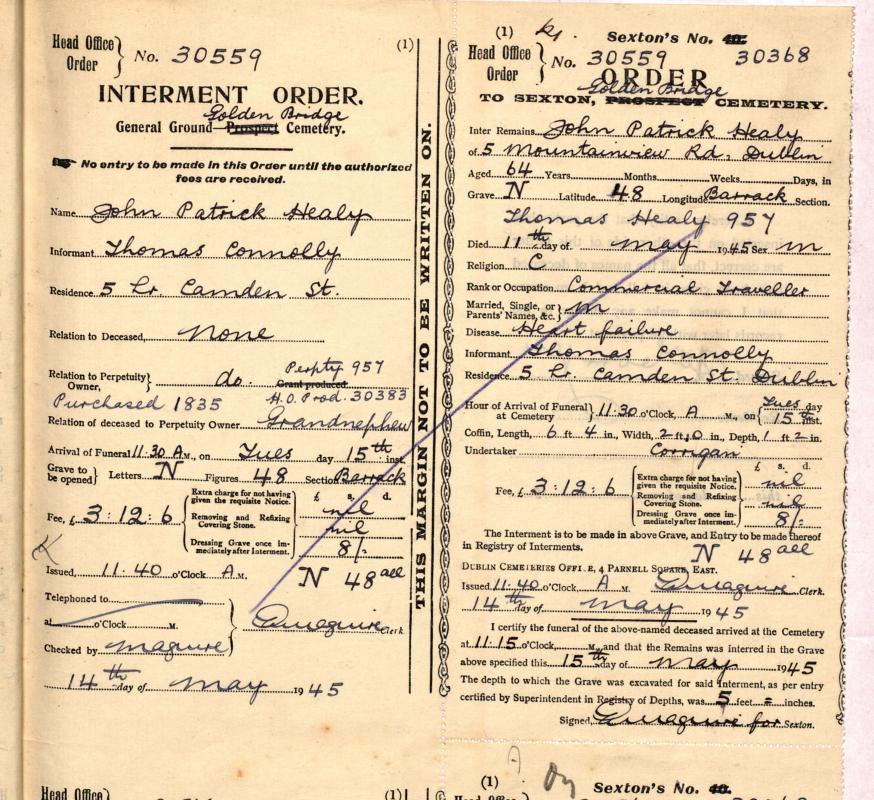 Head Office Order } No. 30559 (1)
INTERMENT ORDER.
Golden Bridge
General Ground Prospect Cemetery.
No entry to be made in this Order until the authorized
fees are received.
Name John Patrick Healy
Informant Thomas Connolly
Residence 5 Lr. Camden St.
Relation to Deceased, None
Relation to Perpetuity Owner, } do. Perpty 957
Grant produced.
Purchased 1835 H.O. Prod. 30383
Relation of deceased to Perpetuity Owner Grandnephew
Arrival of Funeral 11.30 A.M., on Tues day 15th inst.
Grave to be opened } Letters N Figures 48 Section Barrack
Fee, £ 3:12:6
£ s. d.
Extra charge for not having given the requisite Notice. nil
Removing and Refixing Covering Stone. nil
Dressing Grave once immediately after Interment. 8/-
Issued, 11.40 o'Clock A.M. N 48 all
Telephoned to
at o'Clock M.
Checked by Maguire
Maguire Clerk
14th day of May 1945
THIS MARGIN NOT TO BE WRITTEN ON.
(1) Sexton's No. 40. 30368
Head Office Order } No. 30559
ORDER
Golden Bridge
TO SEXTON, PROSPECT CEMETERY.
Inter Remains John Patrick Healy
of 5 Mountainview Rd, Dublin
Aged 64 Years Months Weeks Days, in
Grave N Latitude 48 Longitude Barrack Section.
Thomas Healy 957
Died 11th day of May 1945 Sex m
Religion C
Rank or Occupation Commercial Traveller
Married, Single, or Parents' Names, &c. } m
Disease Heart failure
Informant Thomas Connolly
Residence 5 Lr. Camden St Dublin
Hour of Arrival of Funeral at Cemetery } 11.30 o'Clock, A M., on { Tues day 15th inst.
Coffin, Length, 6 ft 4 in., Width, 2 ft 0 in., Depth 1 ft 2 in.
Undertaker Corrigan
Fee, £ 3:12:6
£ s. d.
Extra charge for not having given the requisite Notice. nil
Removing and Refixing Covering Stone. nil
Dressing Grave once immediately after Interment. 8/-
The Interment is to be made in above Grave, and Entry to be made thereof
in Registry of Interments. N 48 all
DUBLIN CEMETERIES OFFICE, 4 PARNELL SQUARE, EAST.
Issued 11.40 o'Clock A M. Maguire Clerk.
14th day of May 1945
I certify the funeral of the above-named deceased arrived at the Cemetery
at 11.15 o'Clock, M., and that the Remains was interred in the Grave
above specified this 15th day of May 1945
The depth to which the Grave was excavated for said Interment, as per entry
certified by Superintendent in Registry of Depths, was 5 feet = inches.
Signed, Maguire for Sexton.
Head Office (1)
(1) Sexton's No. 40.
Head Office